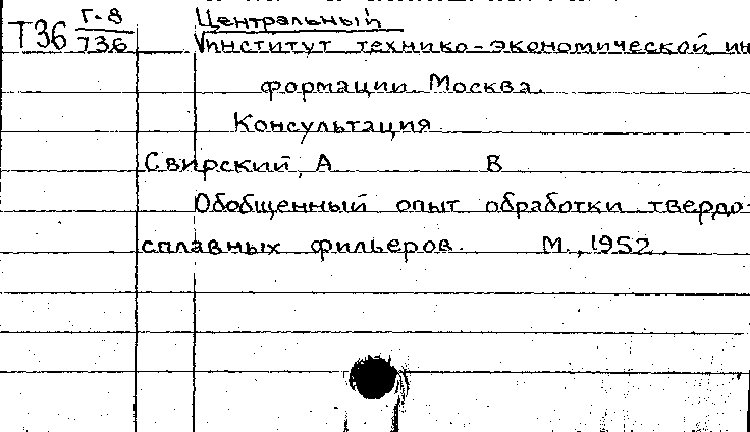 Т36 Г-8/736 Центральный
институт технико-экономической ин
формации. Москва.
Консультация
Свирский, А В
Обобщенный опыт обработки твердо-
сплавных фильеров. М., 1952.